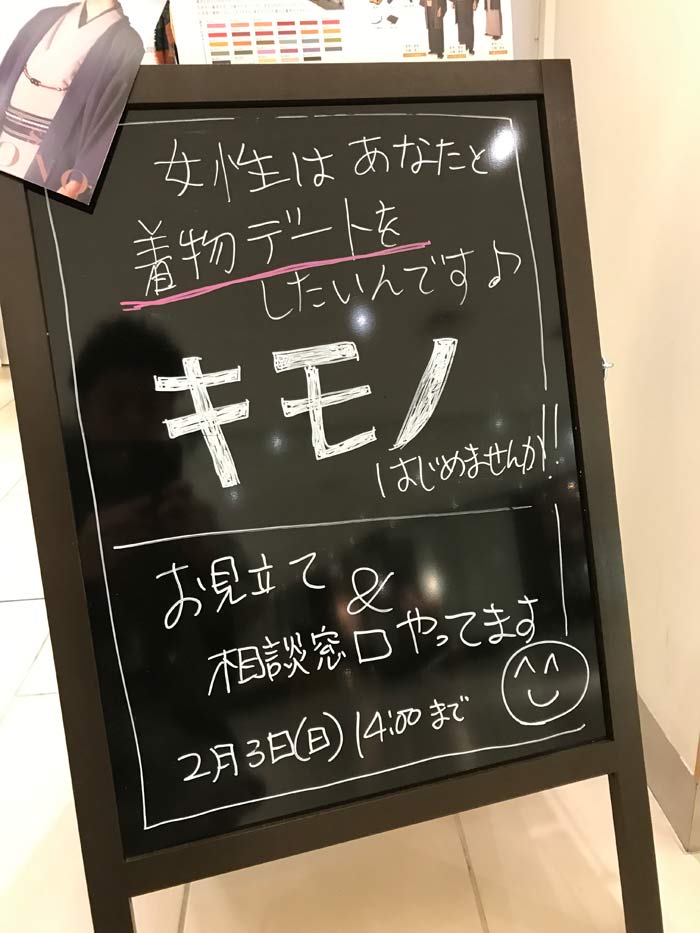 女性はあなたと
着物デートを
したいんです♪
キモノ
はじめませんか!!
お見立て
&
相談窓口やってます
2月3日(日) 14:00まで